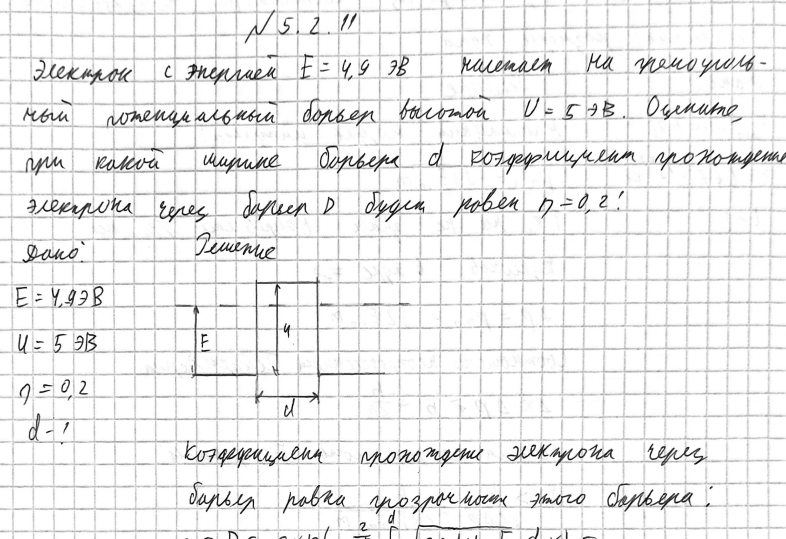 N 5.2.11
Электрон с энергией E = 4,9 эВ налетает на прямоуголь-
ный потенциальный барьер высотой U = 5 эВ. Оцените,
при какой ширине барьера d коэффициент прохождение
электрона через барьер D будет равен η = 0,2!
Дано: Решение
E = 4,9 эВ
U = 5 эВ
η = 0,2
d - !
E
U
d
Коэффициент прохождение электрона через
барьер равна прозрачности этого барьера: